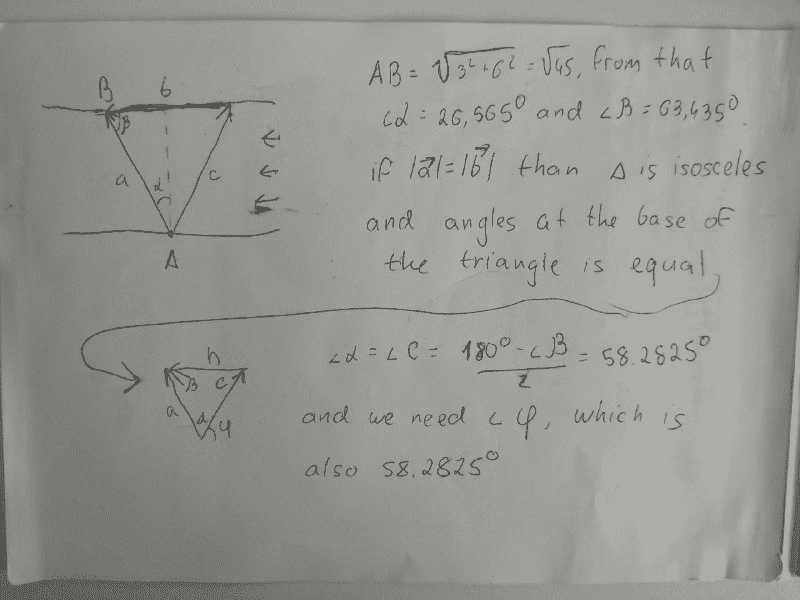 AB = √3²+6² = √45, from that
∠α = 26,565° and ∠β = 63,435°
if |a⃗|=|b⃗| than Δ is isosceles
and angles at the base of
the triangle is equal
B b
β
a α c
A
∠α = ∠C = 180° - ∠β / 2 = 58.2825°
and we need ∠φ, which is
also 58.2825°
h
β c
a α φ